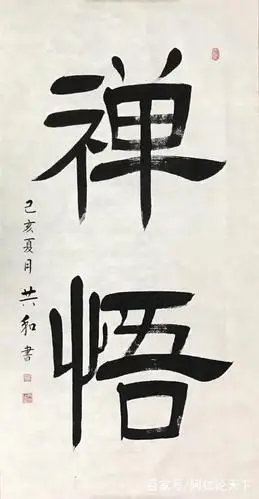 禅悟
己亥夏月 共和书
百家号/阿仁论天下